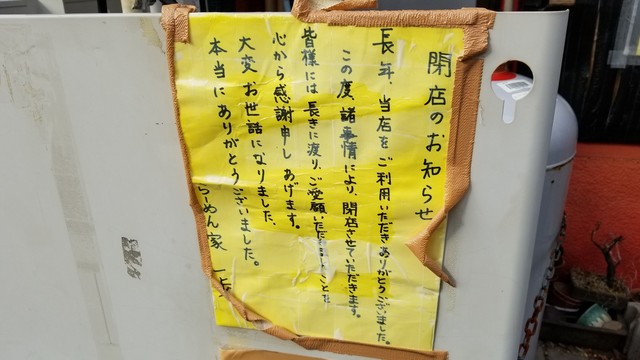 閉店のお知らせ
長年、当店をご利用いただきありがとうございました。
この度、諸事情により、閉店させていただきます。
皆様には長きに渡り、ご愛顧いただきましたこと
心から感謝申しあげます。
大変お世話になりました。
本当にありがとうございました。
らーめん家